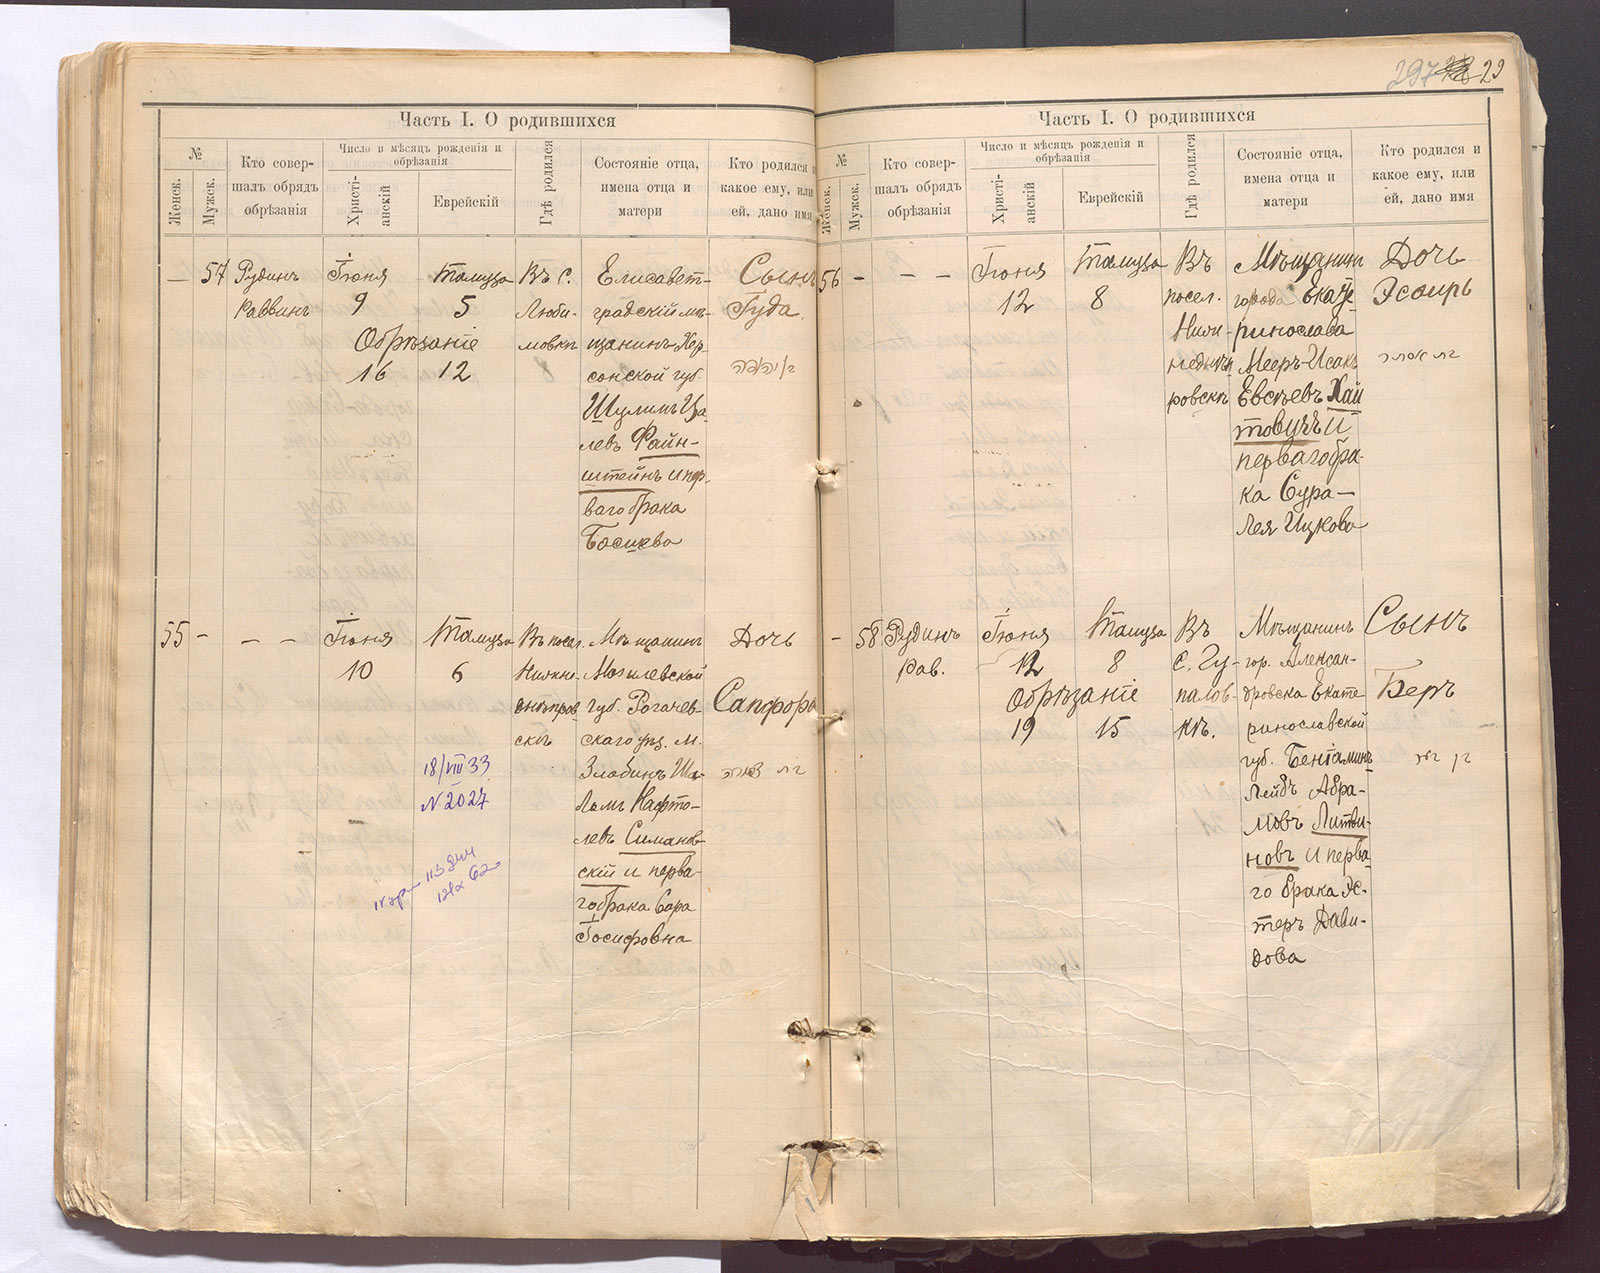 297 29
Часть I. О родившихся
№
Женск.
Мужск.
Кто совер-
шалъ обрядъ
обрѣзанія
Число и мѣсяцъ рожденія и
обрѣзанія
Христі-
анскій
Еврейскій
Гдѣ родился
Состояніе отца,
имена отца и
матери
Кто родился и
какое ему, или
ей, дано имя
— 57
Рудинъ
Раввинъ
Іюня
9
Тамуза
5
Обрѣзаніе
16 12
Въ с.
Люби-
мовкѣ
Елисавет-
градскій мѣ-
щанинъ Хер-
сонской губ.
Шулимъ Ца
левъ Файн-
штейнъ и пер-
ваго брака
Босиева
Сынъ
Іуда
55 -
— —
Іюня
10
Тамуза
6
18/VIII 33
N 2027
Въ посел.
Нижне-
днѣпров
скѣ
Мѣщанинъ
Могилевской
губ. Рогачев-
скаго уѣз. м.
Злобинъ Ша-
ламъ Нафто-
левъ Симанов-
скій и перва-
го брака Сара
Іосифовна
Дочь
Сапфора
Часть I. О родившихся
№
Женск.
Мужск.
Кто совер-
шалъ обрядъ
обрѣзанія
Число и мѣсяцъ рожденія и
обрѣзанія
Христі-
анскій
Еврейскій
Гдѣ родился
Состояніе отца,
имена отца и
матери
Кто родился и
какое ему, или
ей, дано имя
56 —
— — —
Іюня
12
Тамуза
8
Въ
посел.
Ниж-
недніп
ровскѣ
Мѣщанинъ
города Екате
ринослава
Мееръ-Исакъ
Евсѣевъ Хай
товичъ и
перваго бра-
ка Сура-
Лея Ицкова
Дочь
Эсѳирь
— 58
Рудинъ
рав.
Іюня
12
Тамуза
8
Обрѣзаніе
19 15
Въ
с. Гу-
палов-
кѣ.
Мѣщанинъ
гор. Алексан-
дровска Екате
ринославской
губ. Беніаминъ
Лейбъ Абра-
мовъ Литви-
новъ и перва
го брака Эс-
теръ Дави-
дова
Сынъ
Беръ